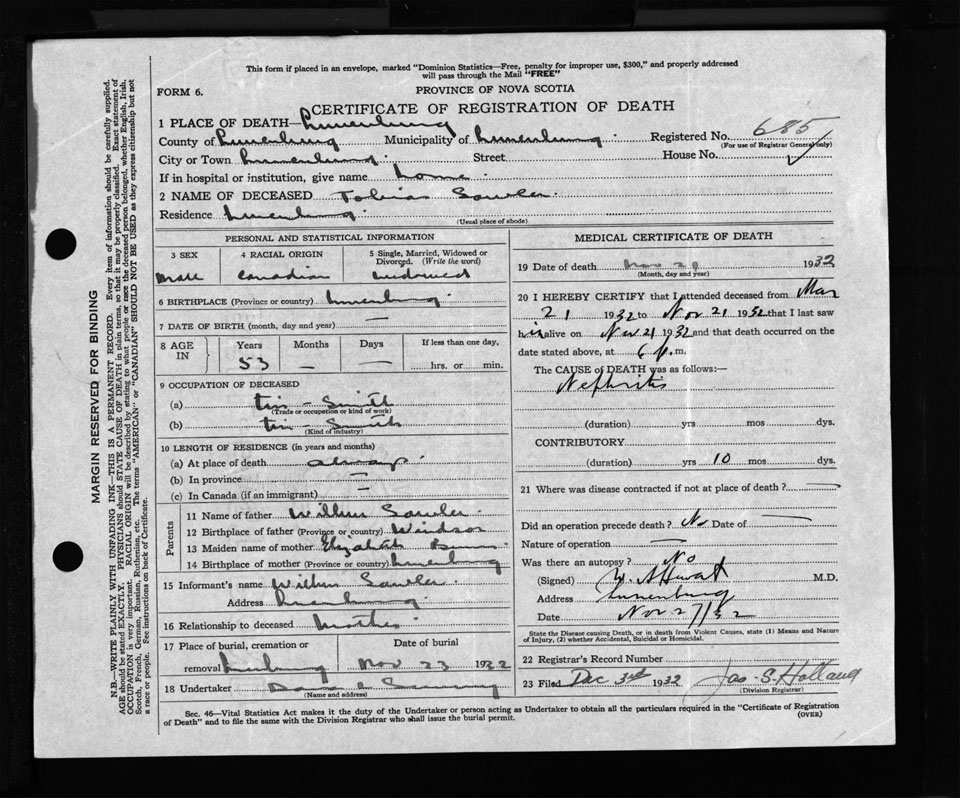 This form if placed in an envelope, marked "Dominion Statistics—Free, penalty for improper use, $300," and properly addressed
will pass through the Mail "FREE"
FORM 6.
PROVINCE OF NOVA SCOTIA
CERTIFICATE OF REGISTRATION OF DEATH
1 PLACE OF DEATH—Lunenburg
County of Lunenburg Municipality of Lunenburg Registered No. 685
(For use of Registrar General only)
City or Town Lunenburg Street House No.
If in hospital or institution, give name home
2 NAME OF DECEASED Tobias Sawler
Residence Lunenburg
(Usual place of abode)
PERSONAL AND STATISTICAL INFORMATION
3 SEX 4 RACIAL ORIGIN 5 Single, Married, Widowed or Divorced. (Write the word)
Male Canadian widowed
6 BIRTHPLACE (Province or country) Lunenburg
7 DATE OF BIRTH (month, day and year) —
8 AGE IN Years Months Days If less than one day,
53 — — hrs. or min.
9 OCCUPATION OF DECEASED
(a) tin-Smith
(Trade or occupation or kind of work)
(b) tin-Smith
(Kind of industry)
10 LENGTH OF RESIDENCE (in years and months)
(a) At place of death always
(b) In province —
(c) In Canada (if an immigrant) —
Parents
11 Name of father Sawler
12 Birthplace of father (Province or country) Windsor
13 Maiden name of mother Elizabeth
14 Birthplace of mother (Province or country) Lunenburg
15 Informant's name Sawler
Address Lunenburg
16 Relationship to deceased
17 Place of burial, cremation or removal Date of burial
Lunenburg Nov 23 1932
18 Undertaker
(Name and address)
MEDICAL CERTIFICATE OF DEATH
19 Date of death Nov 1932
(Month, day and year)
20 I HEREBY CERTIFY that I attended deceased from Mar
21 1932 to Nov 21 1932 that I last saw
him alive on Nov 21 1932 and that death occurred on the
date stated above, at 6 p.m.
The CAUSE OF DEATH was as follows:—
Nephritis
(duration) yrs mos dys.
CONTRIBUTORY
(duration) yrs 10 mos dys.
21 Where was disease contracted if not at place of death? —
Did an operation precede death? No Date of —
Nature of operation —
Was there an autopsy? No
(Signed) M.D.
Address Lunenburg
Date Nov 27/32
State the Disease causing Death, or in death from Violent Causes, state (1) Means and Nature
of Injury, (2) whether Accidental, Suicidal or Homicidal.
22 Registrar's Record Number
23 Filed Dec 3rd 1932 Jas. S. Holland
(Division Registrar)
Sec. 46—Vital Statistics Act makes it the duty of the Undertaker or person acting as Undertaker to obtain all the particulars required in the "Certificate of Registration
of Death" and to file the same with the Division Registrar who shall issue the burial permit. (OVER)
MARGIN RESERVED FOR BINDING
N.B.—WRITE PLAINLY WITH UNFADING INK—THIS IS A PERMANENT RECORD. Every item of information should be carefully supplied.
AGE should be stated EXACTLY. PHYSICIANS should STATE CAUSE OF DEATH in plain terms, so that it may be properly classified. Exact statement of
OCCUPATION is very important. RACIAL ORIGIN will be described by stating to what people or race the deceased person belonged, whether English, Irish,
Scotch, French, German, Russian, Ruthenian, etc. The terms "AMERICAN" or "CANADIAN" SHOULD NOT BE USED as they express citizenship but not
a race or people. See instructions on back of Certificate.